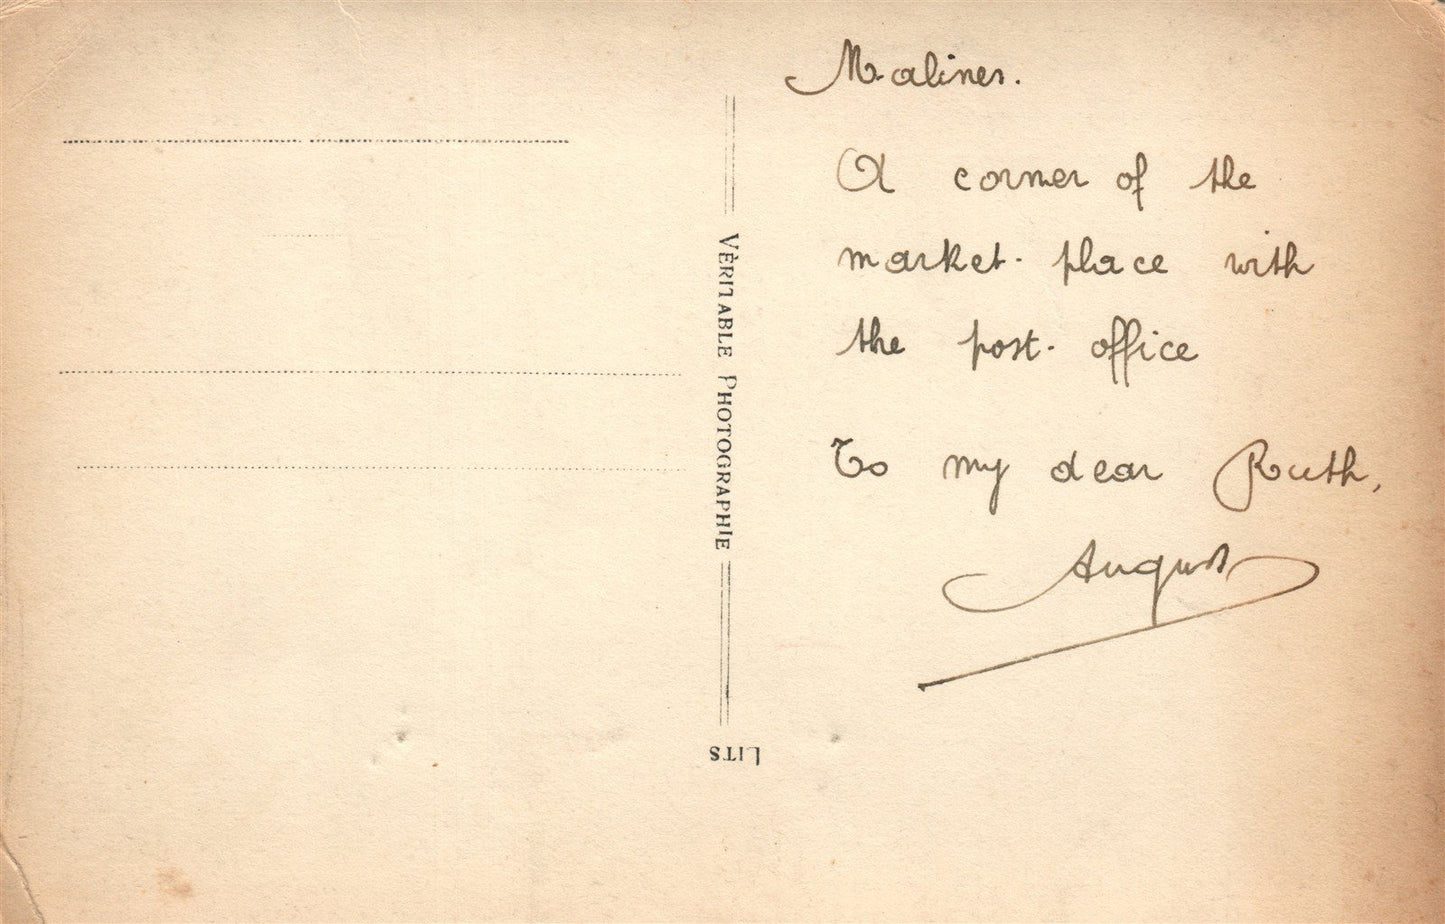 Malines.
A corner of the
market-place with
the post-office
To my dear Ruth,
August
VÈRITABLE PHOTOGRAPHIE
LITS